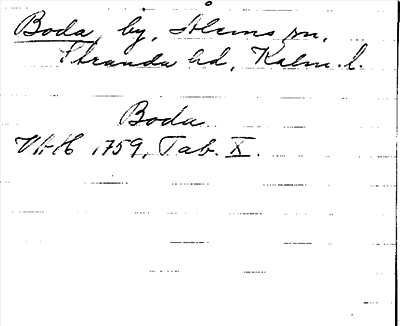 Boda, by, Ålems sn,
Stranda hd, Kalm. l.
Boda
VHH 1759, Tab. X.